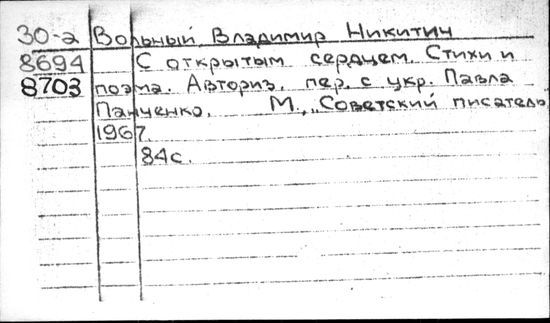 30-а Вольный, Владимир Никитич
8694 С открытым сердцем. Стихи и
8703 поэма. Авториз. пер. с укр. Павла
Панченко. М., „Советский писатель,
1967.
84с.